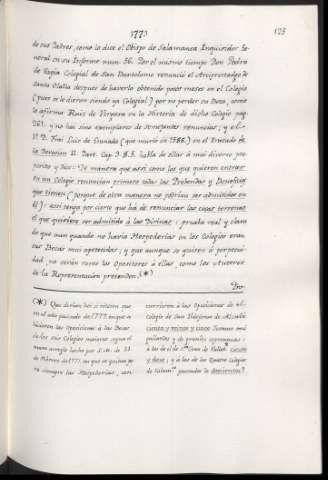 1777
123
de sus Padres, como lo dice el Obispo de Salamanca Inquisidor Ge-
neral en su Informe num. 56. Por el mismo tiempo Don Pedro
de Tapia Colegial de San Bartolome renunció el Arciprestazgo de
Santa Olalla despues de haverlo obtenido pocos meses en el Colegio
(pues se le dieron siendo ya Colegial) por no perder su Beca, como
lo afirma Ruiz de Vergara en la Historia de dicho Colegio pag.
261. y no hai sino exemplares de semejantes renuncias; y el
Frai Luis de Granada (que murio en 1588.) en el Tratado de
la Devocion Part. Cap. 3. §.5. habla de ellas á mui diverso pro-
posito y dice: De manera que assi como los que quieren entrar
en un Colegio renuncian primero todas las Prebendas y Beneficios
que tienen (porque de otra manera no podrian ser admitidos en
él) assi tenga por cierto que ha de renunciar las cosas terrenas
el que quisiere ser admitido á las Divinas: prueba real y clara
de que aun quando no havia Hospederias en los Colegios eran
sus Becas mui apetecidas; y que aunque se quiten á perpetui-
dad, no serán raros los Opositores á ellas, como los Autores
de la Representacion pretenden. (*)
Pro-
(*) Que dirian hoi si viessen que
en el año passado de 1777. en que se
hicieron las Oposiciones á las Becas
de los seis Colegios maiores segun el
nuevo arreglo hecho por S.M. de 21
de Febrero de 1777. en que se quitan pa-
ra siempre las Hospederias, con-
currieron á las Oposiciones de el
Colegio de San Ildefonso de Alcalá
ciento y treinta y cinco Jovenes mui
gallardos y de grandes esperanzas:
á las de el de Sta. Cruz de Vallad. ciento
y doce; y á las de los Quatro Colegios
de Salam.ca passados de doscientos?